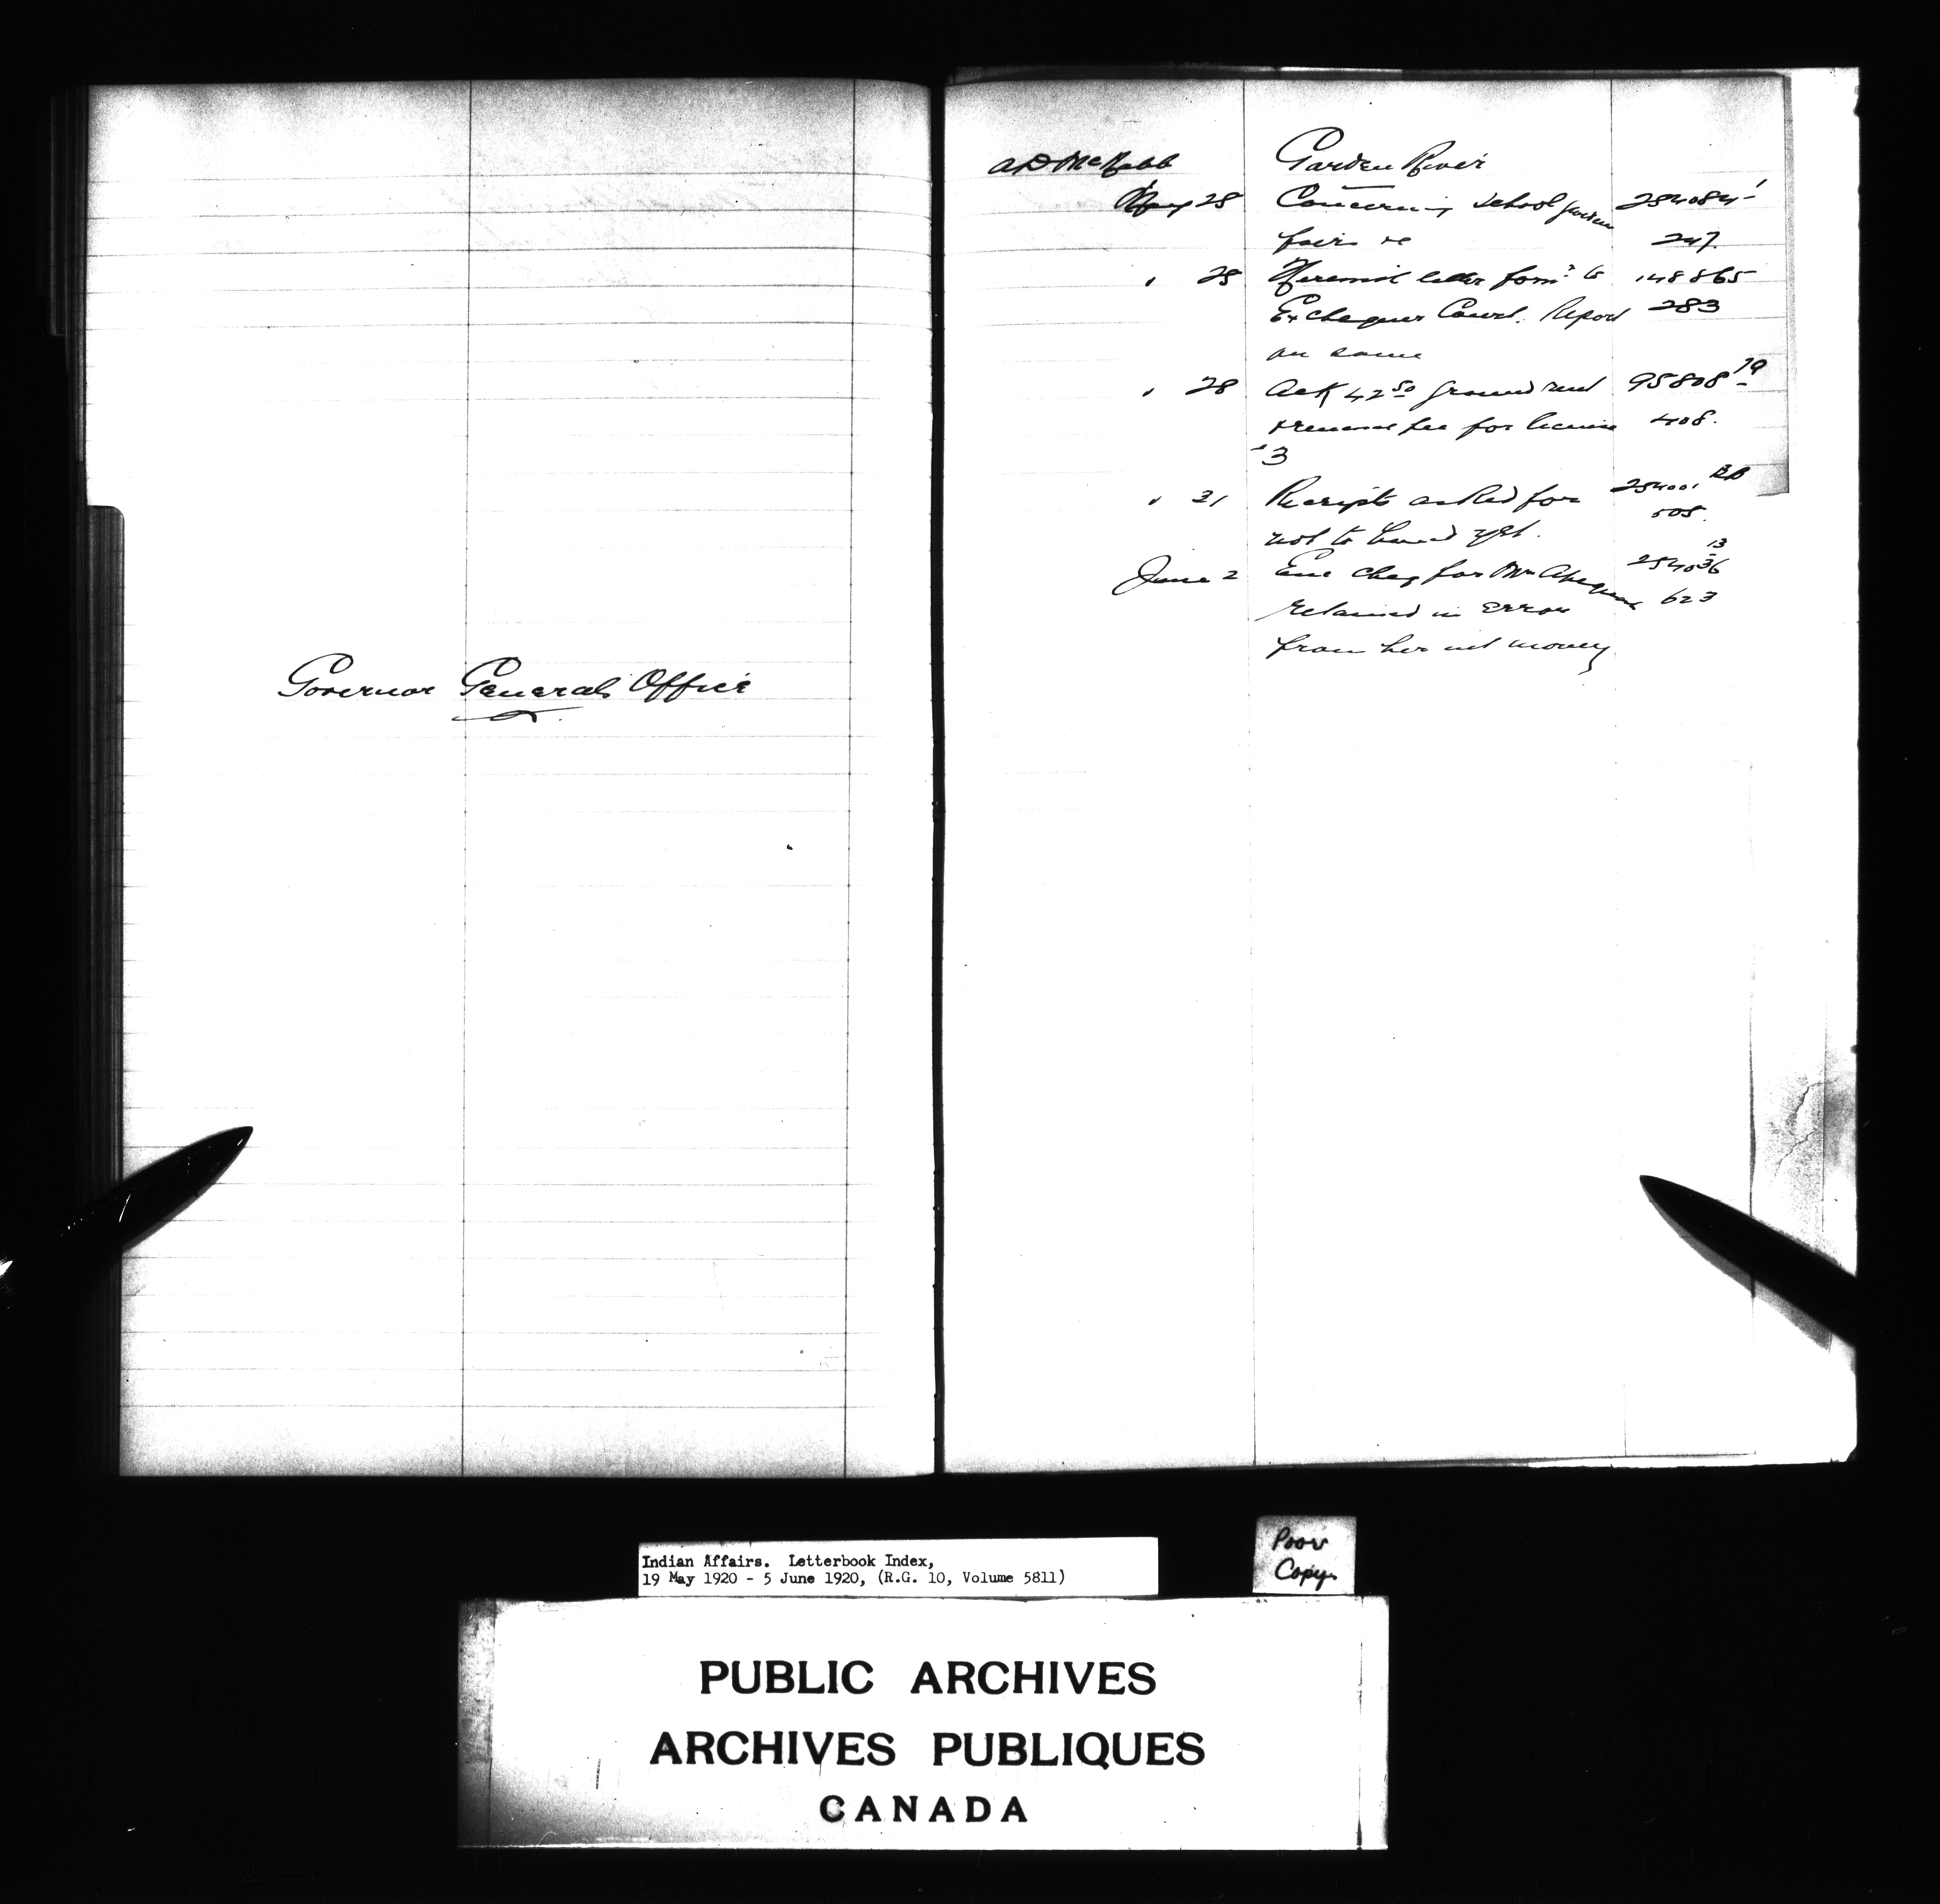 Governor Generals Office
A D McNabb Garden River
May 28 Concerning school garden 254084-1
fairs re 247
" 28 letter form to 148865
Exchequer Court. Report 283
on same
" 28 Ack 42 50 ground rent 95808-19
+ renewal fee for license 408.
3
" 31 Receipts asked for 254001 RB
not to hand yet. 505.
June 2 Enc cheq for Mrs 254036-13
retained in error 623
from her int money
Indian Affairs. Letterbook Index,
19 May 1920 - 5 June 1920, (R.G. 10, Volume 5811)
Poor
Copy
PUBLIC ARCHIVES
ARCHIVES PUBLIQUES
CANADA